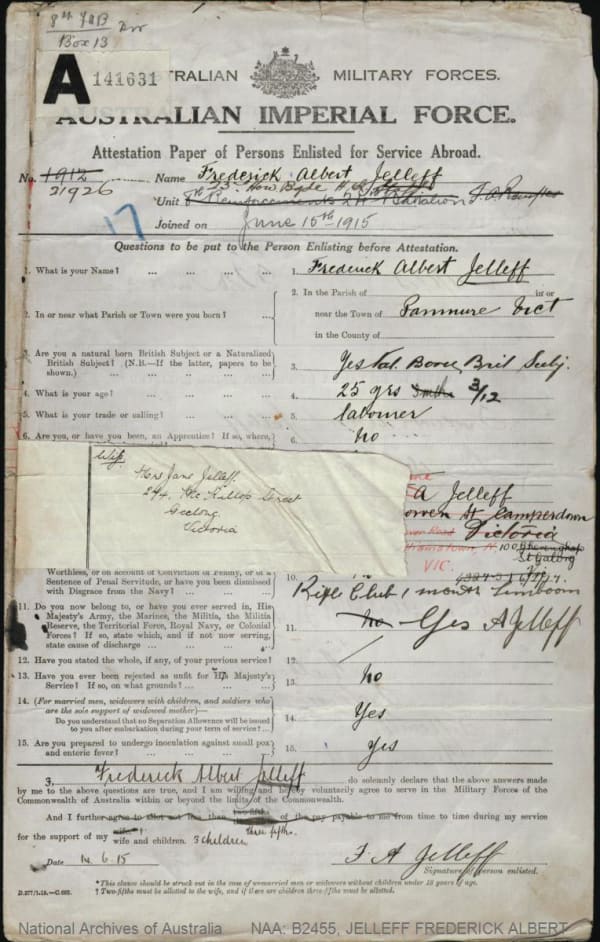 8th FAB
Box 13
A 141631
AUSTRALIAN MILITARY FORCES.
AUSTRALIAN IMPERIAL FORCE.
Attestation Paper of Persons Enlisted for Service Abroad.
No. 1912 Name Frederick Albert Jelleff
21926
Unit Reinforcements Battalion
Joined on June 15th 1915
17
Questions to be put to the Person Enlisting before Attestation.
1. What is your Name? ... ... ... ... 1. Frederick Albert Jelleff
2. In the Parish of in or
2. In or near what Parish or Town were you born? ... near the Town of Panmure Vict
in the County of
3. Are you a natural born British Subject or a Naturalized
British Subject? (N.B.—If the latter, papers to be
shown.) ... ... ... ... ... 3. Yes Nat. Born Brit Subj.
4. What is your age? ... ... ... ... 4. 25 yrs 3/12
5. What is your trade or calling? ... ... ... 5. labourer
6. Are you, or have you been, an Apprentice? If so, where, 6. no
Wife
Mrs Jane Jelleff
Street
Geelong
Victoria
A Jelleff
St Camperdown
Victoria
VIC.
Worthless, or on account of Conviction of Felony, or of a
Sentence of Penal Servitude, or have you been dismissed
with Disgrace from the Navy? ... ... 10.
Rifle Club 1 month
11. Do you now belong to, or have you ever served in, His
Majesty's Army, the Marines, the Militia, the Militia
Reserve, the Territorial Force, Royal Navy, or Colonial
Forces? If so, state which, and if not now serving,
state cause of discharge ... ... ... 11. no Yes A Jelleff
12. Have you stated the whole, if any, of your previous service? 12.
13. Have you ever been rejected as unfit for His Majesty's
Service? If so, on what grounds? ... ... 13. No
14. (For married men, widowers with children, and soldiers who
are the sole support of widowed mother)—
Do you understand that no Separation Allowance will be issued
to you after embarkation during your term of service? ... 14. Yes
15. Are you prepared to undergo inoculation against small pox
and enteric fever? ... ... ... ... 15. Yes
I, Frederick Albert Jelleff do solemnly declare that the above answers made
by me to the above questions are true, and I am willing and hereby voluntarily agree to serve in the Military Forces of the
Commonwealth of Australia within or beyond the limits of the Commonwealth.
And I further agree to allot not less than two-fifths of the pay payable to me from time to time during my service
three fifths
for the support of my wife
wife and children. 3 children
Date 14.6.15 F. A. Jelleff
Signature of person enlisted.
*This clause should be struck out in the case of unmarried men or widowers without children under 18 years of age.
† Two-fifths must be allotted to the wife, and if there are children three-fifths must be allotted.
National Archives of Australia NAA: B2455, JELLEFF FREDERICK ALBERT